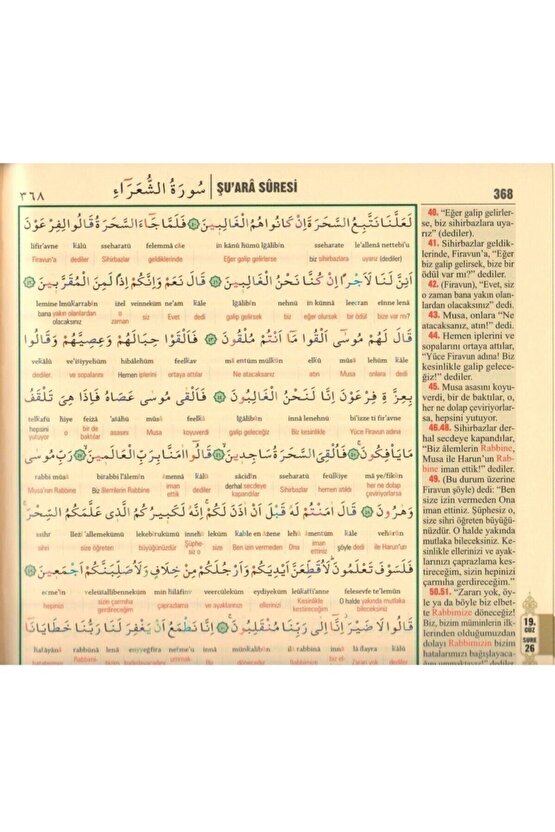 ٣٦٨ سُورَةُ الشُّعَرَاءِ ŞU'ARÂ SÛRESİ 368
لَعَلَّنَا نَتَّبِعُ السَّحَرَةَ اِنْ كَانُوا هُمُ الْغَالِبِينَ فَلَمَّا جَٓاءَ السَّحَرَةُ قَالُوا لِفِرْعَوْنَ
lifir'avne kâlû sseharatü felemmâ câe in kânû hümü lğâlibîn sseharate le'allenâ nettebi'u
Firavun'a dediler Sihirbazlar geldiklerinde Eğer galip gelirlerse biz sihirbazlara uyarız (dediler)
اَئِنَّ لَنَا لَاَجْرًا اِنْ كُنَّا نَحْنُ الْغَالِبِينَ قَالَ نَعَمْ وَاِنَّكُمْ اِذًا لَمِنَ الْمُقَرَّبِينَ
lemine lmükarrabîn izel veinneküm ne'am kâle lğâlibîn nehnü in künnâ leecran einne lenâ
bana yakın olanlardan olacaksınız o zaman siz Evet dedi galip gelirsek biz eğer olursek bir ödül mü bize var?
قَالَ لَهُمْ مُوسٰٓى اَلْقُوا مَٓا اَنْتُمْ مُلْقُونَ فَاَلْقَوْا حِبَالَهُمْ وَعِصِيَّهُمْ وَقَالُوا
vekâlû ve'isiyyehüm hibâlehüm feelkav mâ entüm mülkûn elkû mûsâ lehüm kâle
dediler ve sopalarını Hemen iplerini ortaya attılar Ne atacaksanız atın Musa onlara dedi
بِعِزَّةِ فِرْعَوْنَ اِنَّا لَنَحْنُ الْغَالِبُونَ فَاَلْقٰى مُوسٰى عَصَاهُ فَاِذَا هِيَ تَلْقَفُ
telkafu hiye feizâ 'asâhü mûsâ feelkâ lğâlibûn innâ lenehnü bi'izze ti fir'avne
hepsini yutuyor o bir de baktılar asasını Musa koyuverdi galip geleceğiz Biz kesinlikle Yüce Firavun adına
مَا يَأْفِكُونَ فَاُلْقِيَ السَّحَرَةُ سَاجِدِينَ قَالُٓوا اٰمَنَّا بِرَبِّ الْعَالَمِينَ رَبِّ مُوسٰى
rabbi mûsâ birabbi l'âlemîn âmennâ kâlû sâcidîn sseharatü feülkiye mâ ye'fikûn
Musa'nın Rabbine Biz âlemlerin Rabbine iman ettik dediler derhal secdeye kapandılar Sihirbazlar hemen atıldı her ne dolap çeviriyorlarsa
وَهٰرُونَ قَالَ اٰمَنْتُمْ لَهُ قَبْلَ اَنْ اٰذَنَ لَكُمْ اِنَّهُ لَكَبِيرُكُمُ الَّذِي عَلَّمَكُمُ السِّحْرَ
ssihr llezî 'allemekümü lekebîrukümü innehû leküm kable en âzene lehû âmentüm kâle vehârûn
sihri size öğreten büyüğünüzdür Şüphesiz o size Ben izin vermeden Ona iman ettiniz şöyle dedi ile Harun'un
فَلَسَوْفَ تَعْلَمُونَ لَاُقَطِّعَنَّ اَيْدِيَكُمْ وَاَرْجُلَكُمْ مِنْ خِلَافٍ وَلَاُصَلِّبَنَّكُمْ اَجْمَعِينَ
ecme'în veleüsallibenneküm min hilâfiv veercüleküm eydiyeküm leükatti'anne felesevfe te'lemûn
hepinizi sizin çarmıha gerdireceğim çaprazlama ve ayaklarınızı ellerinizi Kesinlikle kestireceğim O halde yakında mutlaka bileceksiniz
قَالُوا لَا ضَيْرَ اِنَّٓا اِلٰى رَبِّنَا مُنْقَلِبُونَ اِنَّا نَطْمَعُ اَنْ يَغْفِرَ لَنَا رَبُّنَا خَطَايَانَٓا
hatâyânâ rabbünâ lenâ eyyeğfira netme'u innâ münkalibûn ilâ rabbinâ innâ lâ dayra kâlû
40. "Eğer galip gelirlerse, biz sihirbazlara uyarız" (dediler).
41. Sihirbazlar geldiklerinde, Firavun'a, "Eğer biz galip gelirsek, bize bir ödül var mı?" dediler.
42. (Firavun), "Evet, siz o zaman bana yakın olanlardan olacaksınız" dedi.
43. Musa, onlara "Ne atacaksanız, atın!" dedi.
44. Hemen iplerini ve sopalarını ortaya attılar, "Yüce Firavun adına! Biz kesinlikle galip geleceğiz!" dediler.
45. Musa asasını koyuverdi, bir de baktılar, o, her ne dolap çeviriyorlarsa, hepsini yutuyor.
46.48. Sihirbazlar derhal secdeye kapandılar, "Biz âlemlerin Rabbine, Musa ile Harun'un Rabbine iman ettik!" dediler.
49. (Bu durum üzerine Firavun şöyle) dedi: "Ben size izin vermeden Ona iman ettiniz. Şüphesiz o, size sihri öğreten büyüğünüzdür. O halde yakında mutlaka bileceksiniz. Kesinlikle ellerinizi ve ayaklarınızı çaprazlama kestireceğim, sizin hepinizi çarmıha gerdireceğim."
50.51. "Zararı yok, öyle ya da böyle biz elbette Rabbimize döneceğiz! Biz, bizim müminlerin ilklerinden olduğumuzdan dolayı Rabbimizin bizim hatalarımızı bağışlayaca-
19. CÜZ
SURE 26